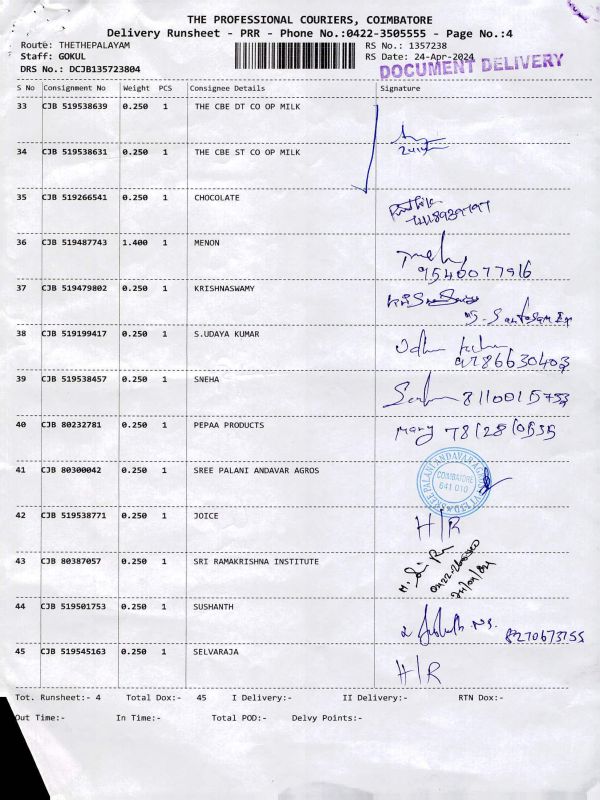 THE PROFESSIONAL COURIERS, COIMBATORE
Delivery Runsheet - PRR - Phone No.:0422-3505555 - Page No.:4
Route: THETHEPALAYAM RS No.: 1357238
Staff: GOKUL RS Date: 24-Apr-2024
DRS No.: DCJB135723804
DOCUMENT DELIVERY
S No Consignment No Weight PCS Consignee Details Signature
33 CJB 519538639 0.250 1 THE CBE DT CO OP MILK
34 CJB 519538631 0.250 1 THE CBE ST CO OP MILK
35 CJB 519266541 0.250 1 CHOCOLATE
36 CJB 519487743 1.400 1 MENON
9540077916
37 CJB 519479802 0.250 1 KRISHNASWAMY
38 CJB 519199417 0.250 1 S.UDAYA KUMAR
9786630403
39 CJB 519538457 0.250 1 SNEHA
8110015753
40 CJB 80232781 0.250 1 PEPAA PRODUCTS
Mary
41 CJB 80300042 0.250 1 SREE PALANI ANDAVAR AGROS
SREE PALANI ANDAVAR AGRO
COIMBATORE
641 010
42 CJB 519538771 0.250 1 JOICE
H/R
43 CJB 80387057 0.250 1 SRI RAMAKRISHNA INSTITUTE
44 CJB 519501753 0.250 1 SUSHANTH
8270673755
45 CJB 519545163 0.250 1 SELVARAJA
H/R
Tot. Runsheet:- 4 Total Dox:- 45 I Delivery:- II Delivery:- RTN Dox:-
Out Time:- In Time:- Total POD:- Delvy Points:-